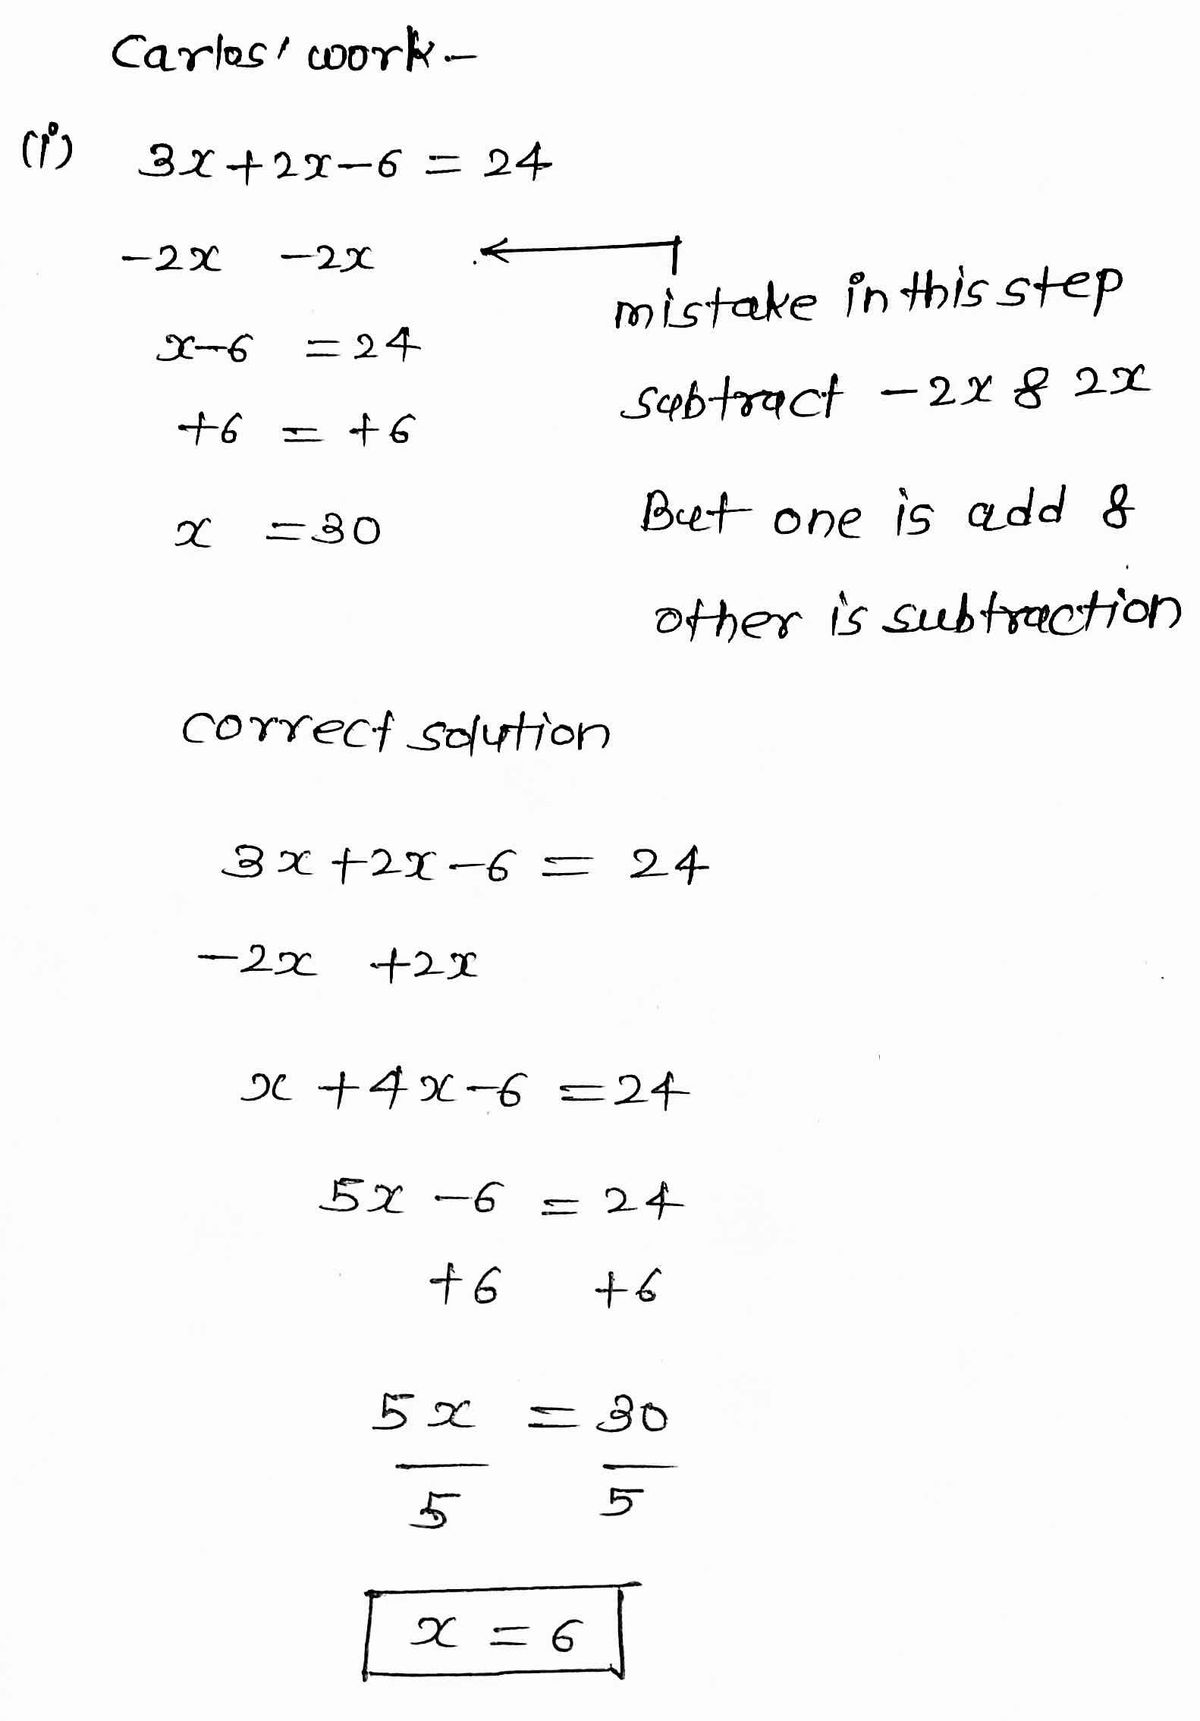 Carlos' work -
(i) 3x + 2x - 6 = 24
-2x -2x
mistake in this step
x - 6 = 24
subtract -2x & 2x
+6 = +6
x = 30
But one is add &
other is subtraction
correct solution
3x + 2x - 6 = 24
-2x +2x
x + 4x - 6 = 24
5x - 6 = 24
+6 +6
5x = 30
5 5
x = 6